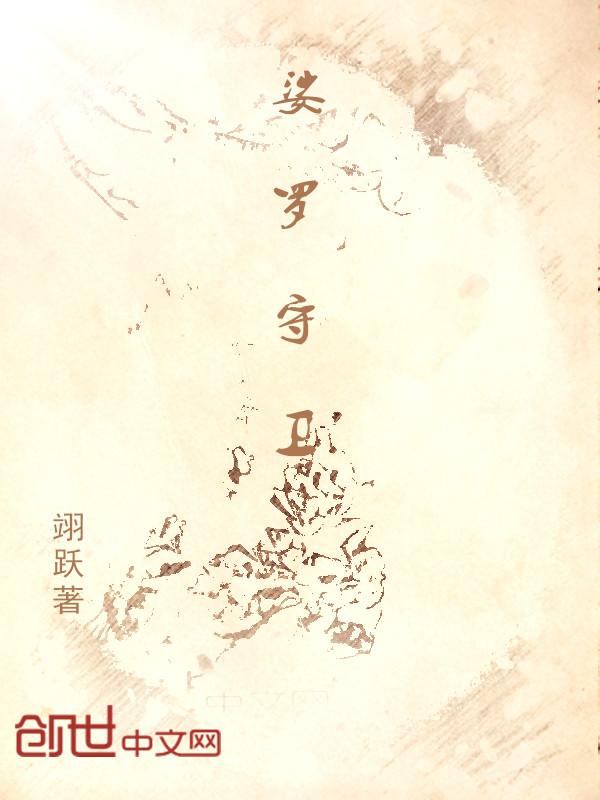 娑罗守卫
翊跃著
中文网
创世中文网